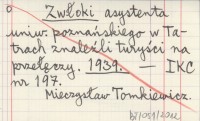 Zwłoki asystenta
uniw. poznańskiego w Ta-
trach znaleźli turyści na
przełęczy. 1939. — IKC
nr 197.
Mieczysław Tomkiewicz.